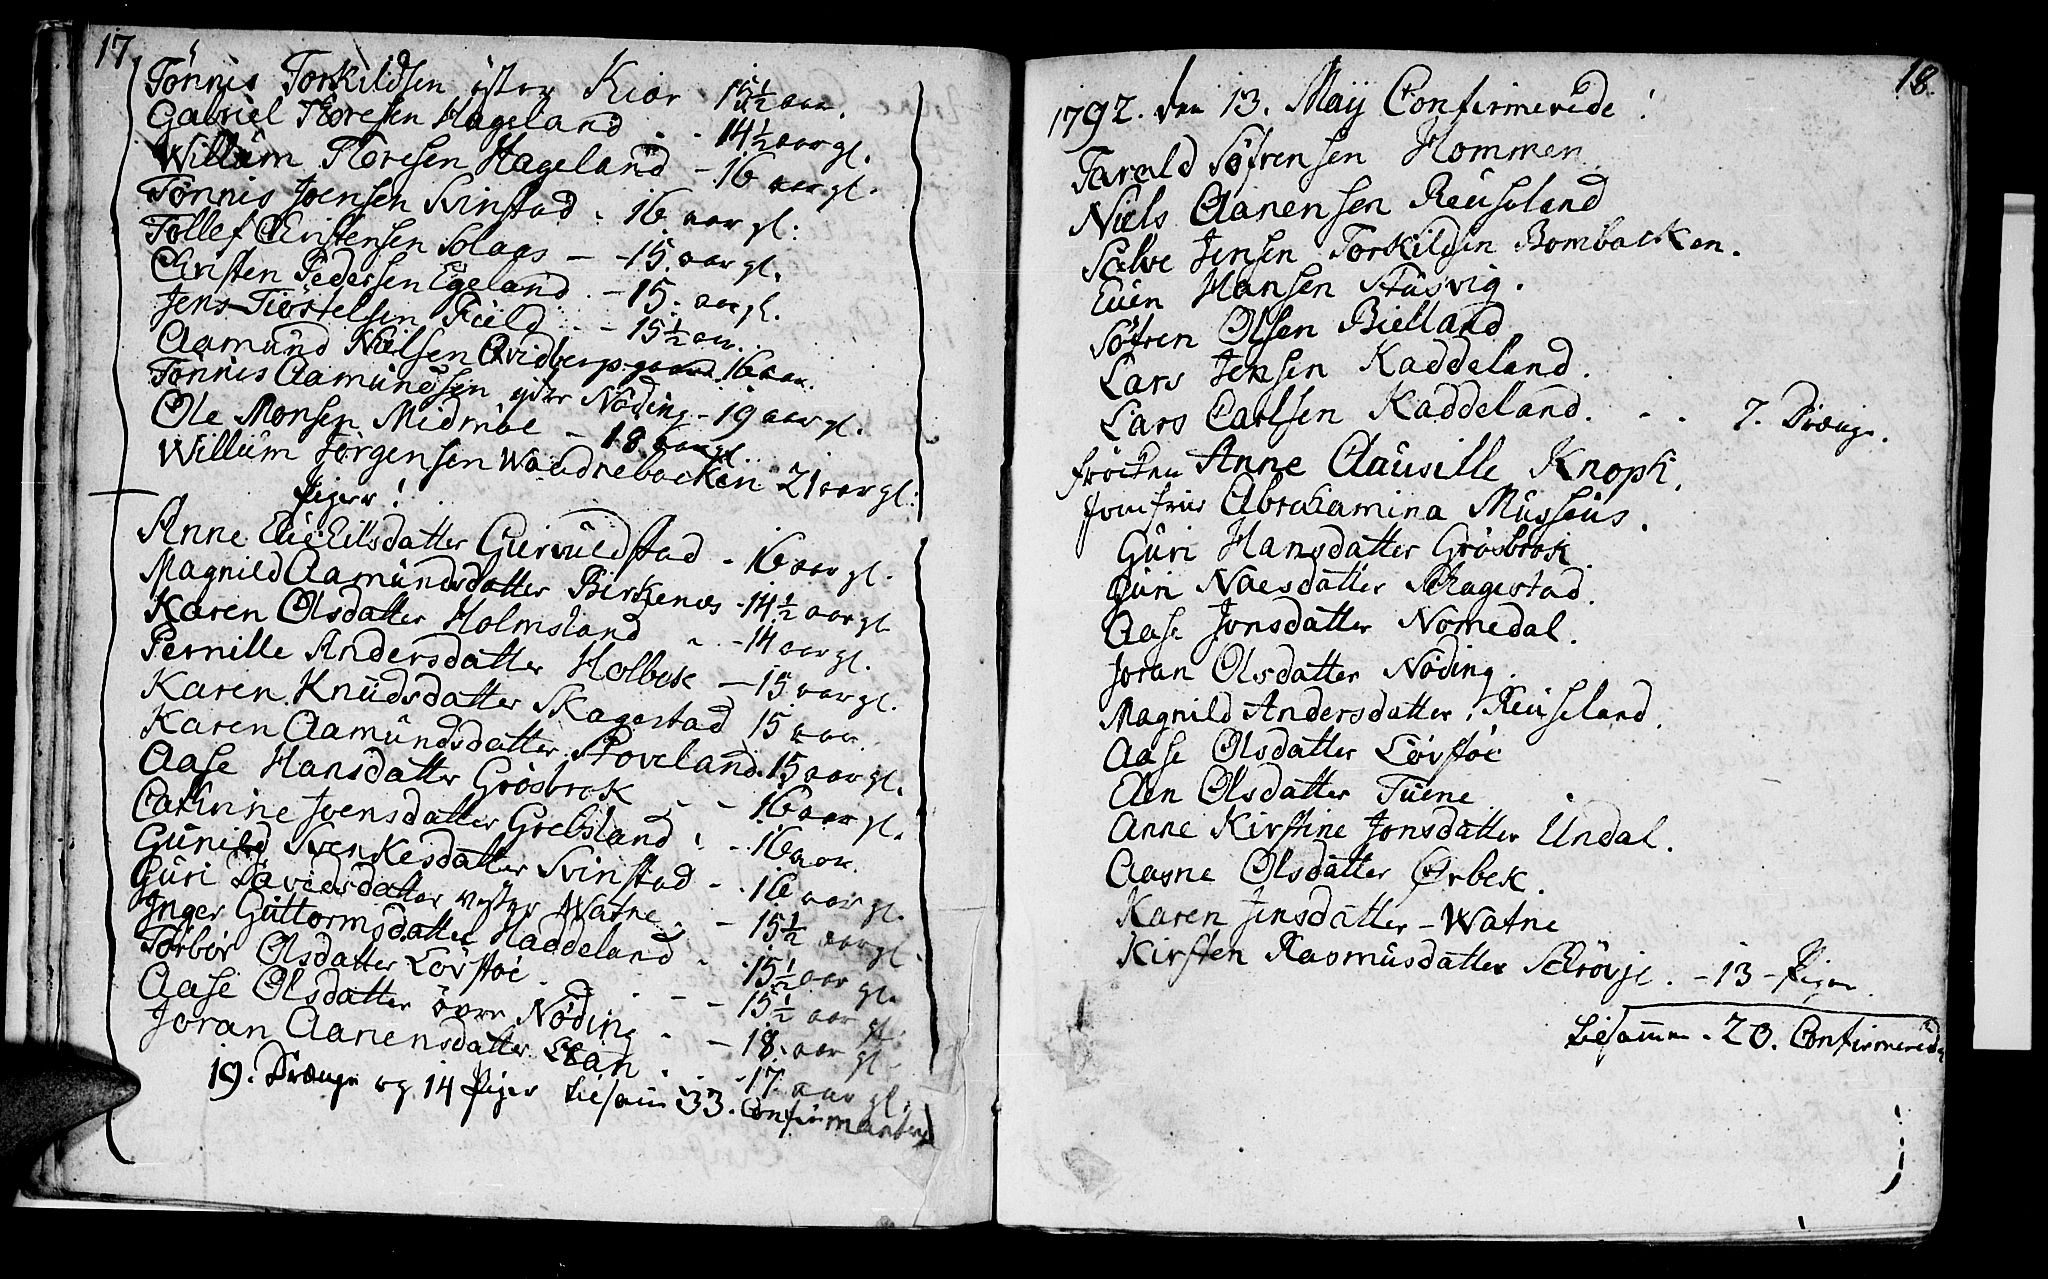 17.
Tönnis Torkildsen öster Kiær 15½ aar.
Gabriel Thoresen Hageland - - 14½ aar gl.
Willum Thoresen Hageland - 16 aar gl.
Tönnis Joensen Svinstad - 16. aar gl.
Tollef Christensen Solaas - - 15. aar gl.
Christen Pedersen Egeland - 15. aar gl.
Jens Tiöstelsen Field - - 15½ aar.
Aamund Nielsen Qvidberg 16 aar.
Tönnis Aamundsen yder Nöding - 19 aar gl.
Ole Monsen Midmöe - 18 aar gl.
Willum Jörgensen Waadnebacken 21 aar gl.
Piger!
Anne Eilertsdatter Gurvuldstad - 16 aar gl.
Magnild Aamundsdatter Birkenes - 14½ aar gl
Karen Olsdatter Holmsland - - 14 aar gl.
Pernille Andersdatter Holbek - 15 aar gl.
Karen Knudsdatter Skagestad 15 aar.
Karen Aamundsdatter Stoveland. 15 aar gl.
Aase Hansdatter Grösbrok - - 16 aar gl.
Cathrine Joensdatter Grebsland - - 16 aar.
Gunild Svenkesdatter Svinstad - - 16 aar gl.
Guri Davidsdatter vester Watne. - 15½ aar gl.
Inger Guttormsdatter Haddeland - - 15½ aar gl.
Torbor Olsdatter Lövstöe - - - 15½ aar gl.
Aase Olsdatter övre Nöding - - 18. aar gl.
Joran Aanensdatter Lian - - 17. aar gl.
19. Drænge og 14 Piger tilsam 33. Confirmanter
18.
1792. den 13. Maij Confirmerede!
Tarald Söfrensen Hommen
Niels Aanensen Reuseland
Salve Jensen Torkildsen Bombacken.
Even Hansen Stusvig.
Söfren Olsen Bielland
Lars Jensen Kaddeland.
Lars Carlsen Kaddeland. - - 7. Drænge.
fröcken Anne Clausille Knoph.
Jomfrue Abrahamina Mussæus.
Guri Hansdatter Grösbrok
Guri Naesdatter Skagestad.
Aase Jonsdatter Nomedal.
Joran Olsdatter Nöding.
Magnild Andersdatter Reuseland.
Aase Olsdatter Lövstöe
Aen Olsdatter Tuene
Anne Kirstine Jonsdatter Undal.
Aasne Olsdatter Ørbek.
Karen Jensdatter - Watne
Kirsten Rasmusdatter Schröyje. - 13 - Piger.
Tilsammen - 20. Confirmerede